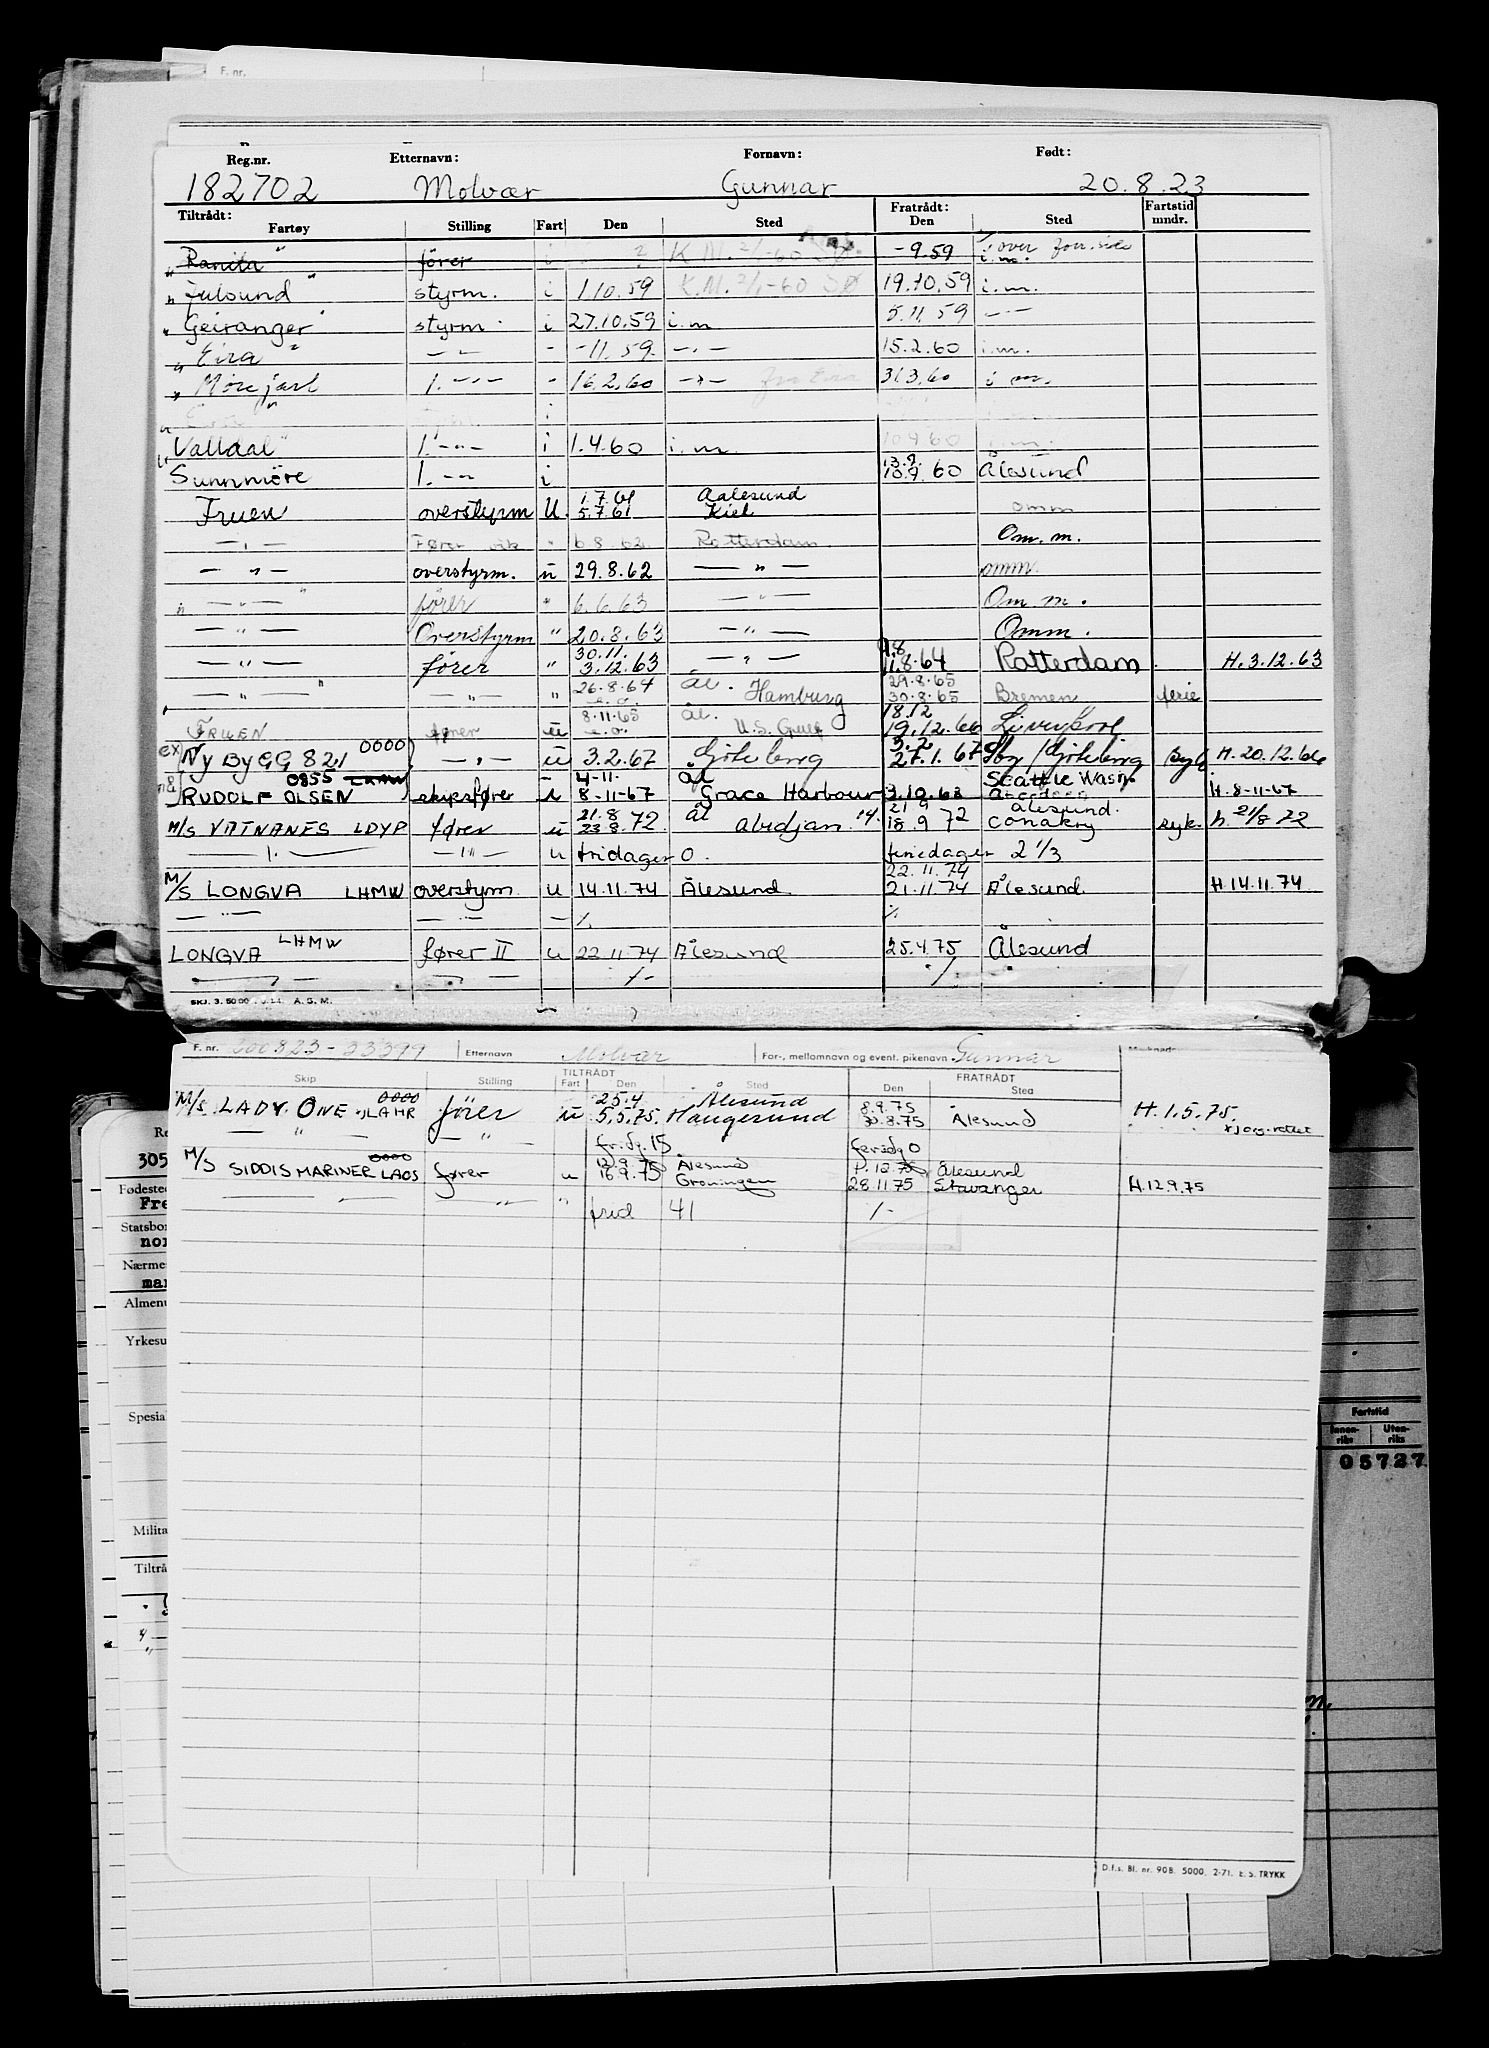 F. nr.
Reg.nr. Etternavn: Fornavn: Født:
182702 Molvær Gunnar 20.8.23
Tiltrådt: Fratrådt: Fartstid
Fartøy Stilling Fart Den Sted Den Sted mndr.
"Ranita" fører i ? K.M. 2/1-60 -9.59 i.m. over
"Julsund" styrm. i 1.10.59 K.M. 2/1-60 SØ 19.10.59 i.m.
"Geiranger" styrm. i 27.10.59 i.m 5.11.59 -"-
"Eira" -"- - -11.59. -"- 15.2.60 i.m.
"Mørejarl 1. -"- " 16.2.60 -"- fra Eira 31.3.60 i m.
i
"Valldal" 1. -"- i 1.4.60 i.m. 10.9.60 i.m.
Sunnmöre 1. -"- i 13.9. 10.9.60 Ålesund
Fruen overstyrm U. 1.7.61 5.7.61 Aalesund Kiel omm
-"- Fører vik " 6.8.62 Rotterdam Om.m.
-"- overstyrm. u 29.8.62 -"- omm
"-"-" fører " 6.6.63 -"- Om.m.
-"- Overstyrm " 20.8.63 -"- Omm.
-"- fører " 30.11. 3.12.63 -"- 9.8 11.8.64 Rotterdam H.3.12.63
-"- -"- " 26.8.64 Ål. Hamburg 29.8.65 30.8.65 Bremen ferie
FRUEN fører u 8.11.65 Ål. U.S. Gulf 18.12 19.12.66 Liverpool
ex Ny BYGG 821 0000 -"- u 3.2.67 Göteborg 3.2. 27.1.67 /Göteborg H.20.12.66
RUDOLF OLSEN 0855 skipsfører u 4-11- 8-11-67 Ål Grace Harbour 3.10.68 Seattle Wash. H-8-11-67
M/S VATNANES LDYP fører u 21.8 23.8.72 Ål Abidjan 21.9 18.9 72 Ålesund. Conakry syk. h. 21/8 72
-"- -"- u fridager 0. feriedager 2 1/3
M/S LONGVA LHMW overstyrm. u 14.11.74 Ålesund. 22.11.74 21.11.74 Ålesund. H.14.11.74
-"- -"- - ./. ./.
LONGVA LHMW fører II u 22.11.74 Ålesund 25.4.75 Ålesund
-"- -"- ./- ./
SKJ. 3. 5000 A. G. M.
F. nr. 200823-33399 Etternavn Molvær For-, mellomnavn og event. pikenavn Gunnar
TILTRÅDT FRATRÅDT
Skip Stilling Fart Den Sted Den Sted
M/S LADY ONE 0000 JLAHR fører u 25.4 5.5.75. Ålesund Haugesund 8.9.75 30.8.75 Ålesund H.1.5.75.
-"- -"- fridg. 15 feriedg 0
M/S SIDDIS MARINER 0000 LAOS fører u 12.9 16.9.75 Ålesund Groningen 1.12.75 28.11.75 Ålesund Stavanger H.12.9.75
-"- -"- " frid 41 ./-
Re
305
Fødested
Fre
Statsbor
nor
Nærme
mar
Almenu
Yrkesu
Spesial
Milita
Tiltrå
Fartstid
Innen-riks Uten-riks
05727
D.f.s. Bl. nr. 90B. 5000. 2-71. E. S. TRYKK